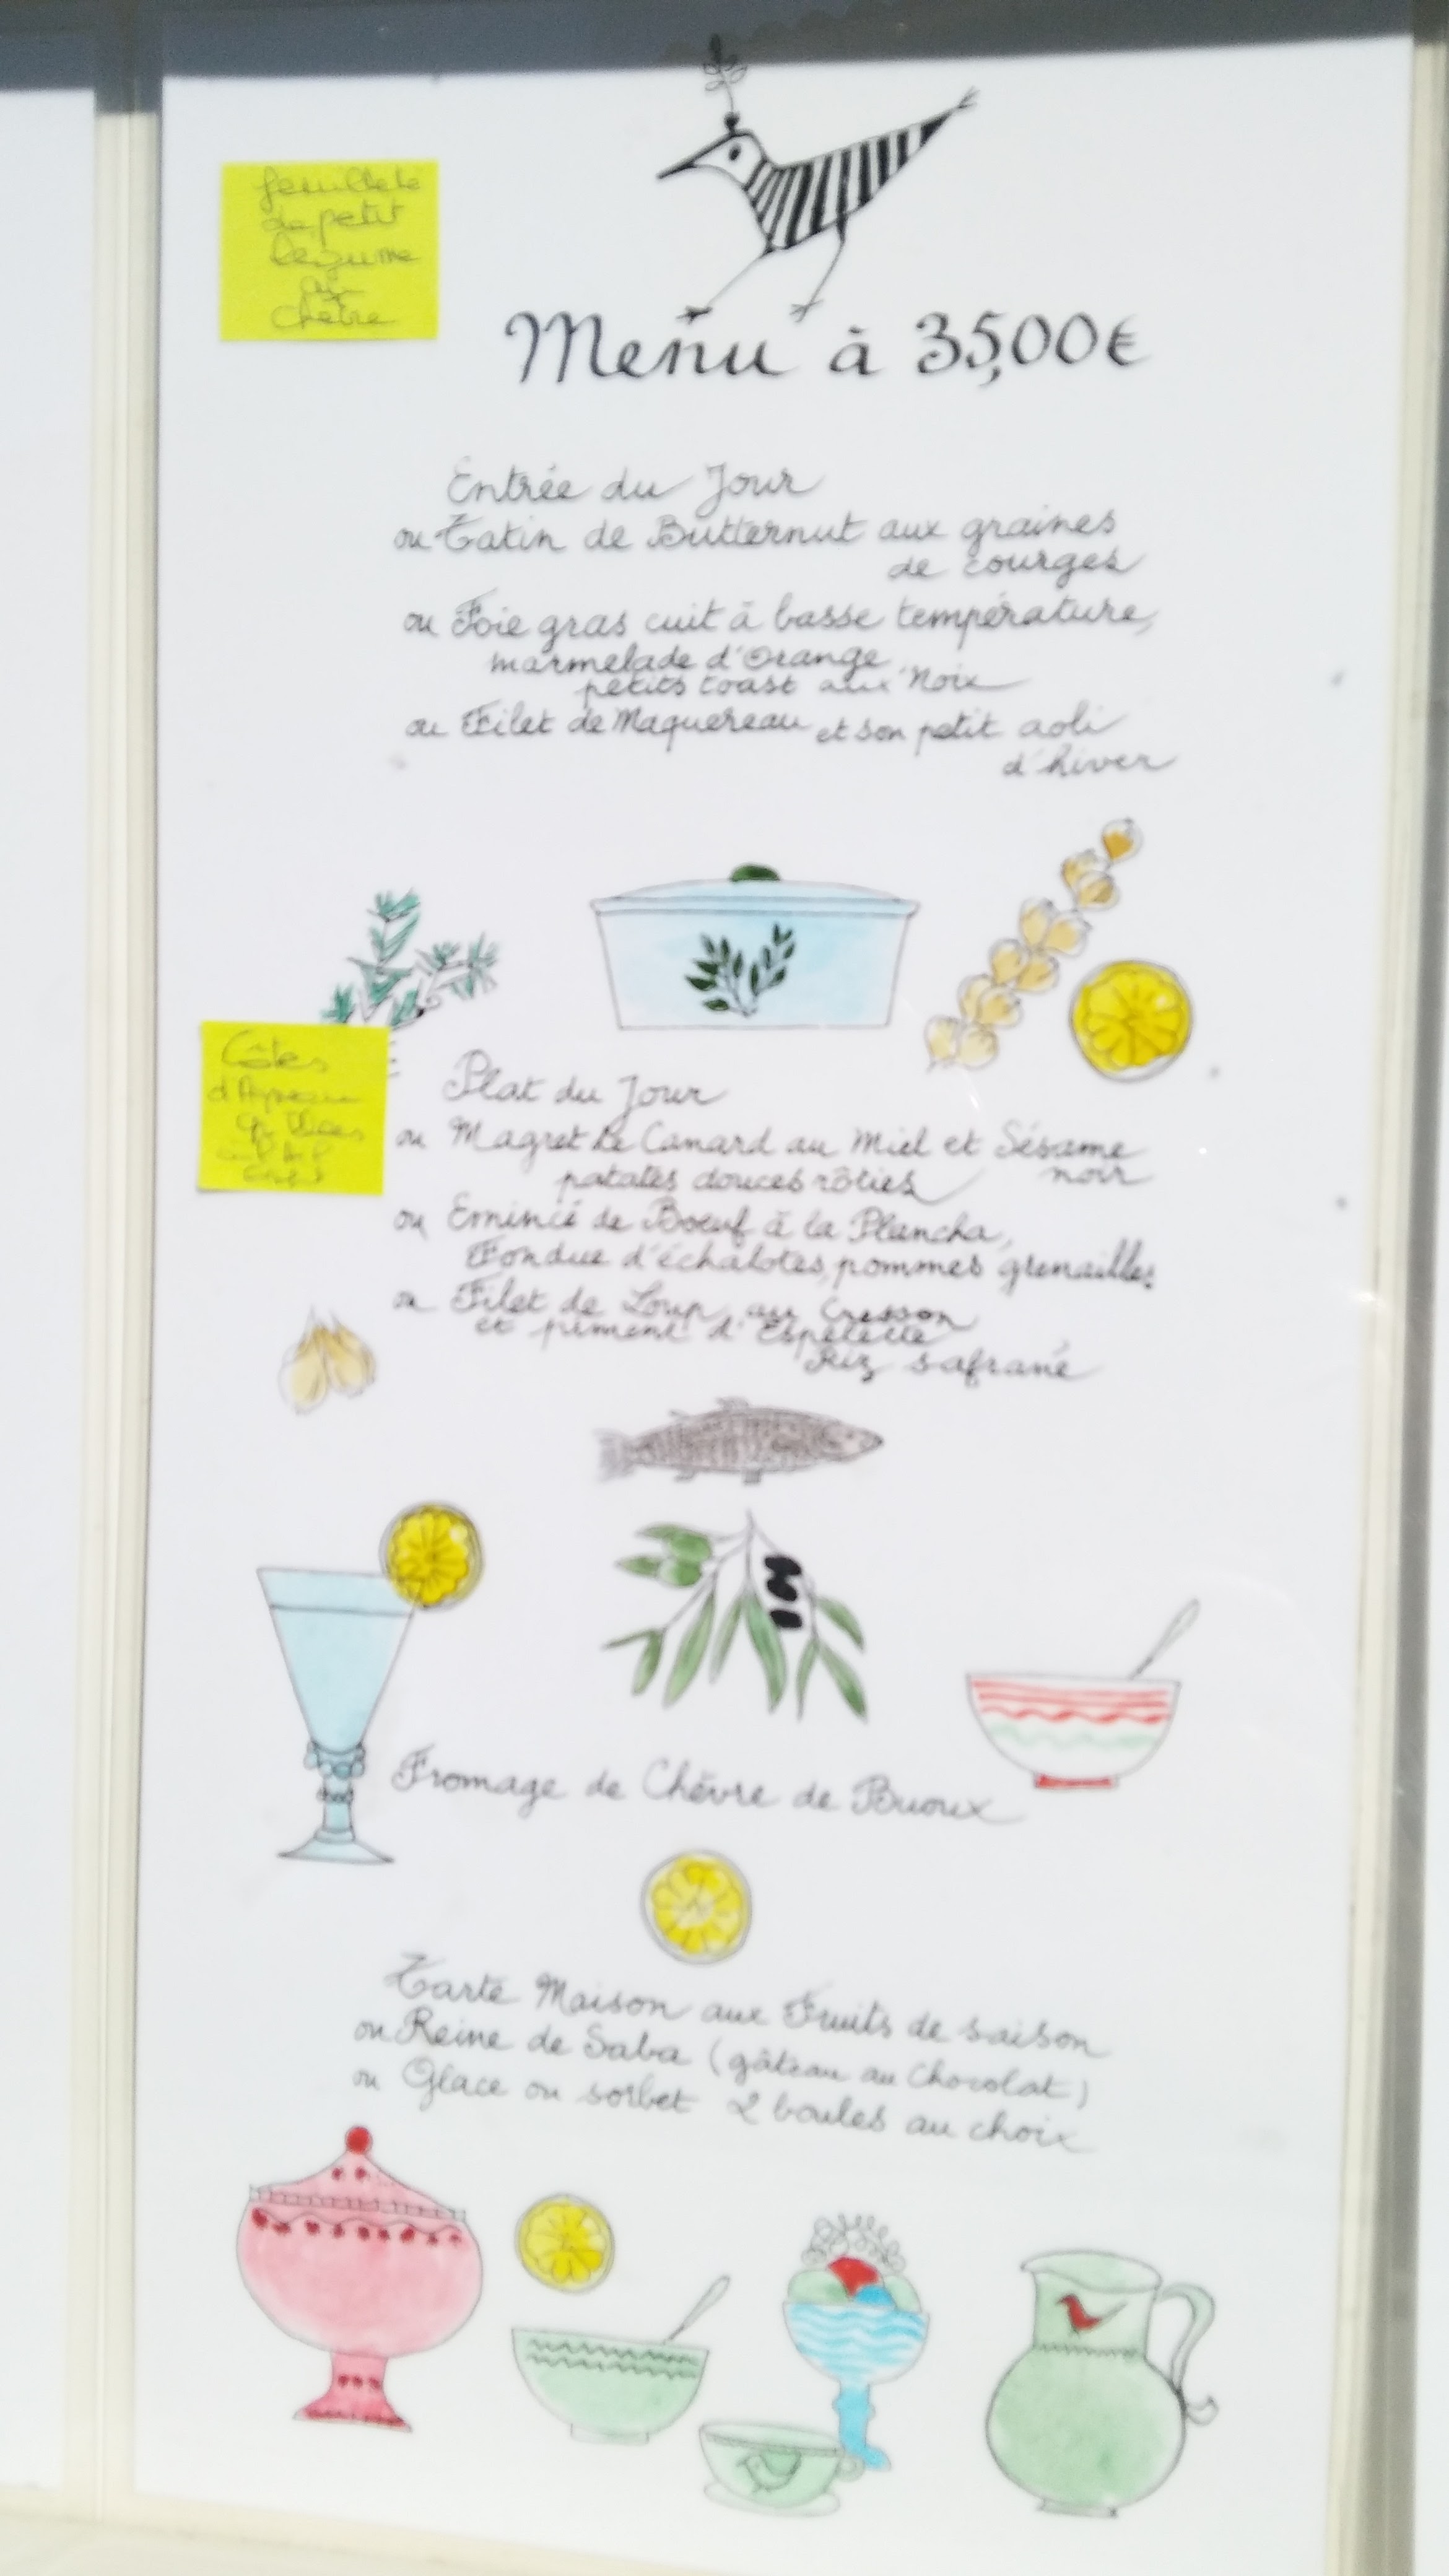 feuilleté
de petit
légume
au
chèvre
Menu à 35,00€
Entrée du Jour
ou Tatin de Butternut aux graines
de courges
ou Foie gras cuit à basse température,
marmelade d'Orange
petits toast aux Noix
ou Filet de Maquereau et son petit aoli
d'hiver
Côtes
d'Agneau
Plat du Jour
ou Magret de Canard au Miel et Sésame
noir
patates douces rôties
ou Emincé de Boeuf à la Plancha,
Fondue d'échalotes, pommes grenailles
ou Filet de Loup au Cresson
et piment d'Espelette
Riz safrané
Fromage de Chèvre de Buoux
Tarte Maison aux Fruits de saison
ou Reine de Saba (gâteau au Chocolat)
ou Glace ou sorbet 2 boules au choix